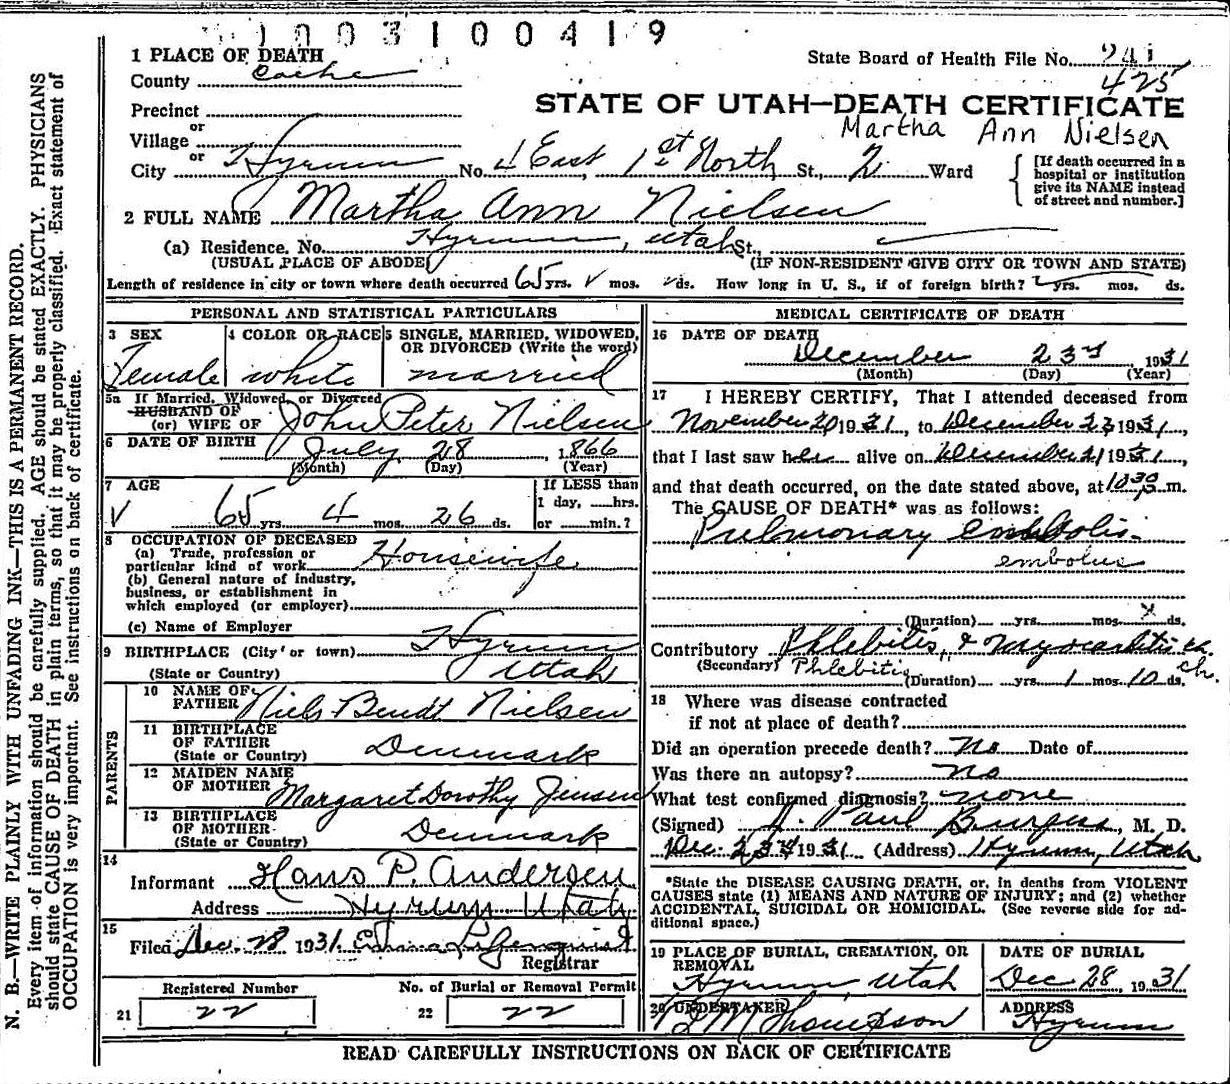 1003100419
1 PLACE OF DEATH
State Board of Health File No. 241
County Cache
425
Precinct
STATE OF UTAH—DEATH CERTIFICATE
or
Village
Martha Ann Nielsen
or
City Hyrum No. 4 East, 1st North St., 2 Ward
[If death occurred in a
hospital or institution
give its NAME instead
of street and number.]
2 FULL NAME Martha Ann Nielsen
(a) Residence, No. Hyrum, Utah St.,
(USUAL PLACE OF ABODE) (IF NON-RESIDENT GIVE CITY OR TOWN AND STATE)
Length of residence in city or town where death occurred 65 yrs. mos. ds. How long in U. S., if of foreign birth? yrs. mos. ds.
PERSONAL AND STATISTICAL PARTICULARS
3 SEX
Female
4 COLOR OR RACE
white
5 SINGLE, MARRIED, WIDOWED,
OR DIVORCED (Write the word)
married
5a If Married, Widowed, or Divorced
HUSBAND OF
(or) WIFE OF John Peter Nielsen
6 DATE OF BIRTH July 28, 1866
(Month) (Day) (Year)
7 AGE
65 yrs. 4 mos. 26 ds.
If LESS than
1 day, hrs.
or min.?
8 OCCUPATION OF DECEASED
(a) Trade, profession or
particular kind of work Housewife
(b) General nature of industry,
business, or establishment in
which employed (or employer)
(c) Name of Employer
9 BIRTHPLACE (City or town) Hyrum
(State or Country) Utah
PARENTS
10 NAME OF
FATHER Niels Bendt Nielsen
11 BIRTHPLACE
OF FATHER
(State or Country) Denmark
12 MAIDEN NAME
OF MOTHER Margaret Dorothy Jensen
13 BIRTHPLACE
OF MOTHER
(State or Country) Denmark
14
Informant Hans P. Andersen
Address Hyrum Utah
15
Filed Dec. 28 1931
Registrar
Registered Number
21 22
No. of Burial or Removal Permit
22 22
MEDICAL CERTIFICATE OF DEATH
16 DATE OF DEATH
December 23rd, 1931
(Month) (Day) (Year)
17 I HEREBY CERTIFY, That I attended deceased from
November 20 1931, to December 23 1931,
that I last saw her alive on December 21 1931,
and that death occurred, on the date stated above, at 10 30 m.
The CAUSE OF DEATH* was as follows:
Pulmonary embolis.
embolus
(Duration) yrs. mos. ds.
Contributory Phlebitis, & Myocarditis ch.
(Secondary) Phlebitis chr.
(Duration) yrs. 1 mos. 10 ds.
18 Where was disease contracted
if not at place of death?
Did an operation precede death? No Date of
Was there an autopsy? no
What test confirmed diagnosis? none
(Signed) Paul Burgess, M. D.
Dec. 23rd 1931 (Address) Hyrum, Utah
*State the DISEASE CAUSING DEATH, or, in deaths from VIOLENT
CAUSES state (1) MEANS AND NATURE OF INJURY; and (2) whether
ACCIDENTAL, SUICIDAL OR HOMICIDAL. (See reverse side for ad-
ditional space.)
19 PLACE OF BURIAL, CREMATION, OR
REMOVAL
Hyrum, Utah
DATE OF BURIAL
Dec 28, 1931
20 UNDERTAKER
M Thompson
ADDRESS
Hyrum
READ CAREFULLY INSTRUCTIONS ON BACK OF CERTIFICATE
N. B.—WRITE PLAINLY WITH UNFADING INK—THIS IS A PERMANENT RECORD.
Every item of information should be carefully supplied. AGE should be stated EXACTLY. PHYSICIANS
should state CAUSE OF DEATH in plain terms, so that it may be properly classified. Exact statement of
OCCUPATION is very important. See instructions on back of certificate.